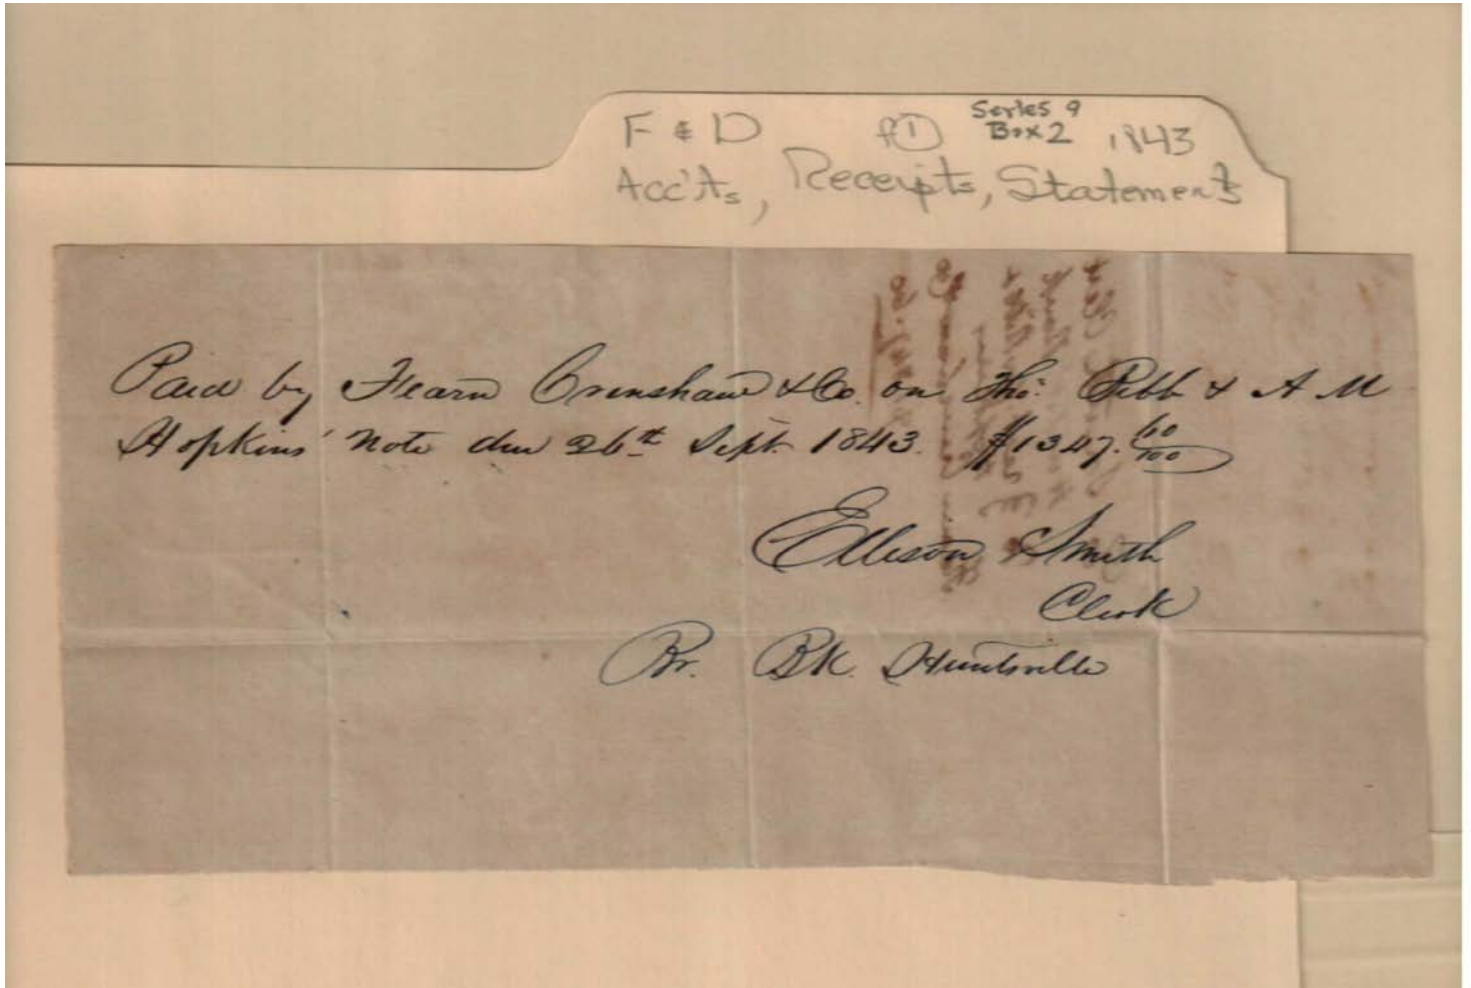 F & D f① Series 9
Box 2 1843
Acc'ts, Receipts, Statements
Paid by Fearn Crenshaw & Co. on Tho: Bibb & A M
Hopkins' Note due 26th Sept. 1843. $1347.60/100
Ellison Smith
Clerk
Br. Bk. Huntsville